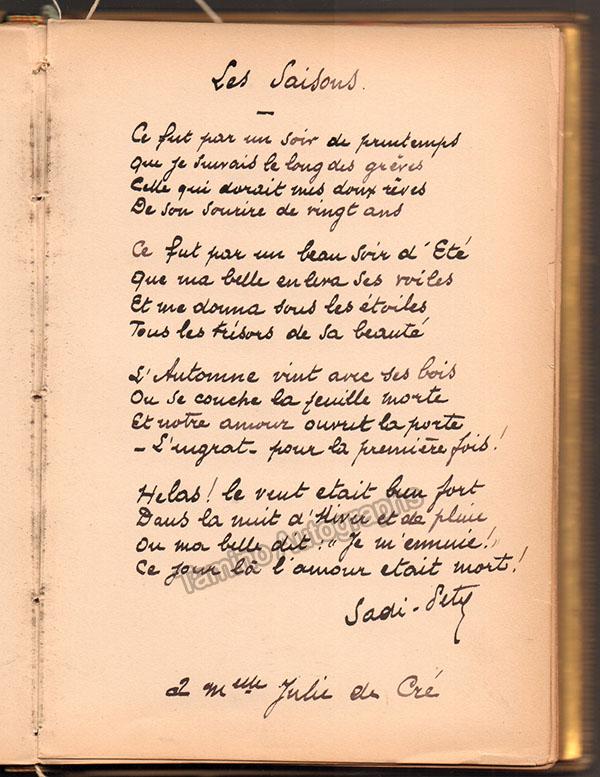 Les Saisons.
Ce fut par un soir de printemps
Que je suivais le long des grêves
Celle qui dorait mes doux rêves
De son sourire de vingt ans
Ce fut par un beau soir d'Eté
Que ma belle enleva ses voiles
Et me donna sous les étoiles
Tous les trésors de sa beauté
L'Automne vint avec ses bois
Ou se couche la feuille morte
Et notre amour ouvrit la porte
- L'ingrat - pour la première fois!
Helas! le vent etait bien fort
Dans la nuit d'Hiver et de pluie
Ou ma belle dit: "Je m'ennuie!"
Ce jour là l'amour etait mort!
Sadi-Pety
a Melle Julie de Cré
Tamino Autographs